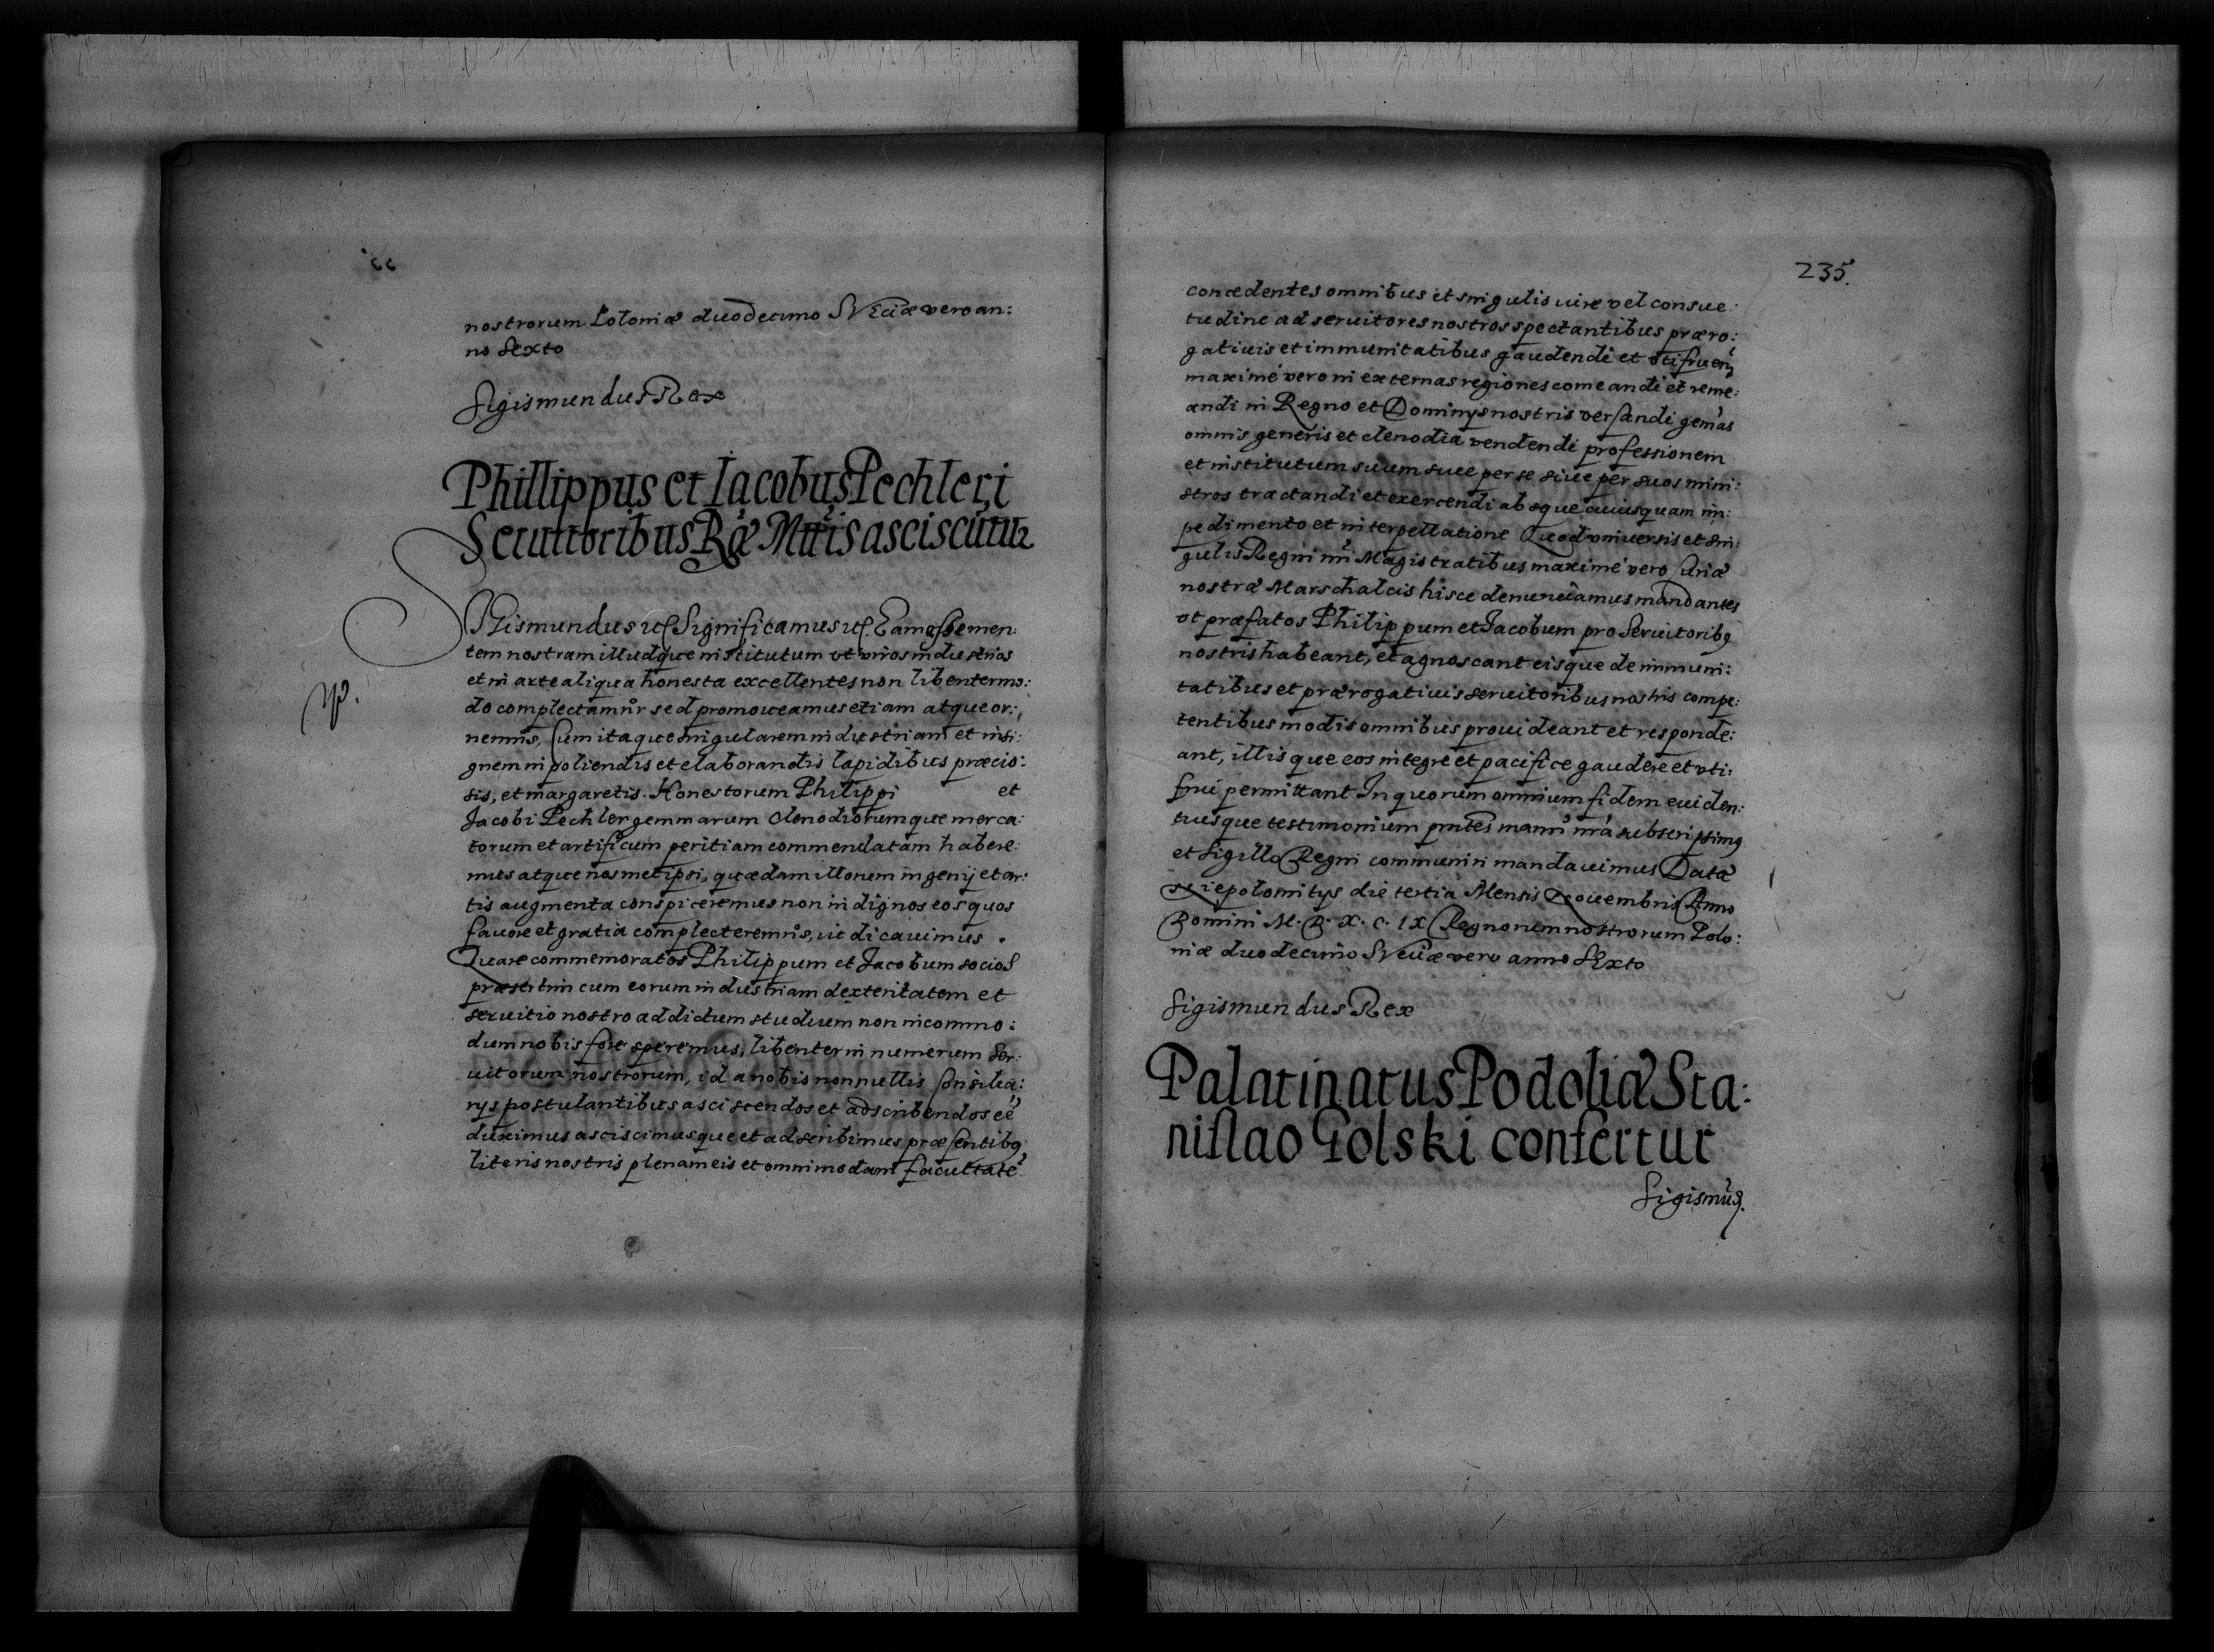 nostrorum Poloniæ duodecimo SVEciæ vero an:
no Sexto
Sigismundus Rex
Phillippus et Iacobus Pechleri
Seruitoribus Ræ Mttis asciscūtur
SIGismundus etc Significamus etc. Eam esse men:
tem nostram illudque institutum vt viros industrios
et in arte aliqua honesta excellentes non libenter mo:
do complectamur sed promoueamus etiam atque or:
nemus, Cum itaque singularem industriam et insi:
gnem in poliendis et elaborandis lapidibus præcio:
sis, et margaretis. Honestorum Philippi et
Jacobi Pechler gemmarum clenodiorumque merca:
torum et artificum peritiam commendatam habere:
mus atque nosmetipsi, quædam illorum ingenij et ar:
tis augmenta conspiceremus non indignos eos quos
fauore et gratia complecteremur, iudicauimus.
Quare commemoratos Philippum et Jacobum socios
præsertim cum eorum industriam dexteritatem et
seruitio nostro addictum studium non incommo:
dum nobis fore speremus, libenter in numerum Ser:
uitorum nostrorum, id a nobis nonnullis Consilia:
rys postulantibus asciscendos et adscribendos eē
duximus asciscimusque et adscribimus præsentibq
literis nostris plenam eis et omnimodam facultatē
235.
concedentes omnibus et singulis iure vel consue:
tudine ad seruitores nostros spectantibus præro:
gatiuis et immunitatibus gaudendi et vti fruendi
maximé vero in externas regiones comeandi et reme:
andi in Regno et Dominys nostris versandi gem̄as
omnis generis et clenodia vendendi professionem
et institutum suum siue per se siue per suos mini:
stros tractandi et exercendi absque cuiusquam im:
pedimento et interpellatione Quod vniuersis et sin:
gulis Regni nri Magistratibus maximé vero Curiæ
nostræ Marschalcis hisce denunciamus mandantes
vt præfatos Philippum et Jacobum pro Seruitoribq
nostris habeant, et agnoscant eisque de immuni:
tatibus et prærogatiuis seruitoribus nostris compe:
tentibus modis omnibus prouideant et responde:
ant, illisque eos integré et pacifice gaudere et vti:
frui permittant In quorum omnium fidem euiden:
tiusque testimonium pntes manu nra subscripsimq
et Sigillo Regni communiri mandauimus Datæ
die tertia Mensis Nouembris Anno
Domini M. D. X. C. IX Regnorum nostrorum Polo:
niæ duodecimo SVEciæ vero anno SExto
Sigismundus Rex
Palatinatus Podoliæ Sta:
nislao Golski confertur
Sigismūq.